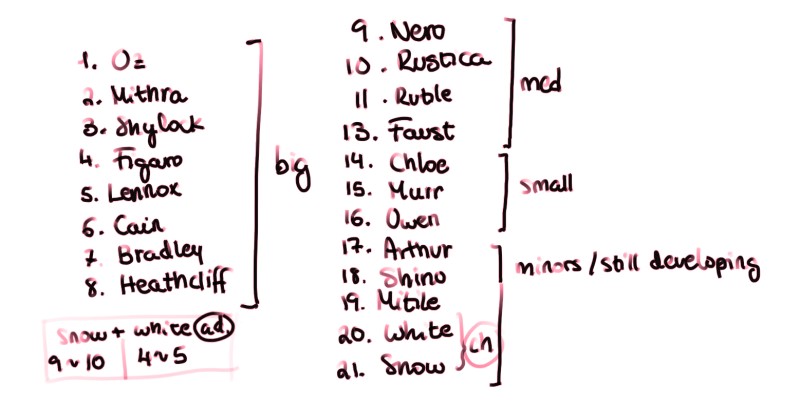 1. Oz
2. Mithra
3. Shylock
4. Figaro
5. Lennox
6. Cain
7. Bradley
8. Heathcliff
big
Snow + white ad.
9~10 | 4~5
9. Nero
10. Rustica
11. Ruble
13. Faust
med
14. Chloe
15. Murr
16. Owen
small
17. Arthur
18. Shino
19. Mitile
20. White
21. Snow
ch
minors / still developing